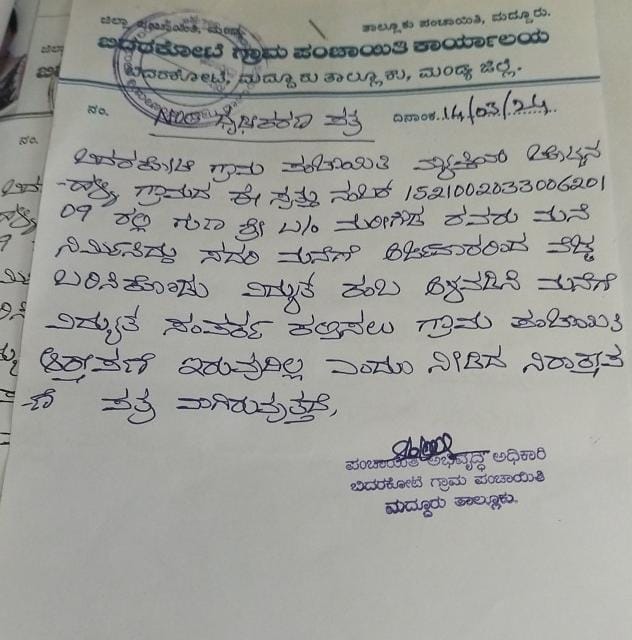 ಜಿಲ್ಲಾ ಪಂಚಾಯಿತಿ, ಮಂಡ್ಯ ತಾಲ್ಲೂಕು ಪಂಚಾಯಿತಿ, ಮದ್ದೂರು.
ಬಿದರಕೋಟೆ ಗ್ರಾಮ ಪಂಚಾಯಿತಿ ಕಾರ್ಯಾಲಯ
ಬಿದರಕೋಟೆ, ಮದ್ದೂರು ತಾಲ್ಲೂಕು, ಮಂಡ್ಯ ಜಿಲ್ಲೆ.
ನಂ. ದಿನಾಂಕ. 14/03/24
ಪತ್ರ
ಬಿದರಕೋಟೆ ಗ್ರಾಮ ಪಂಚಾಯಿತಿ
ಗ್ರಾಮದ ಈ ಸ್ವತ್ತು ನಂಬರ್ 1521002033006201
09 ರಲ್ಲಿ ಶ್ರೀ ರವರು ಮನೆ
ನಿರ್ಮಿಸಿದ್ದು ಸದರಿ ಮನೆಗೆ ಅರ್ಜಿದಾರರಿಂದ ವೆಚ್ಚ
ಬರಿಸಿಕೊಂಡು ವಿದ್ಯುತ್ ಕಂಬ ಅಳವಡಿಸಿ ಮನೆಗೆ
ವಿದ್ಯುತ್ ಸಂಪರ್ಕ ಕಲ್ಪಿಸಲು ಗ್ರಾಮ ಪಂಚಾಯಿತಿ
ಆಕ್ಷೇಪಣೆ ಇರುವುದಿಲ್ಲ ಎಂದು ನೀಡಿದ ನಿರಾಕ್ಷೇಪ
-ಣೆ ಪತ್ರ ವಾಗಿರುವುತ್ತದೆ,
ಪಂಚಾಯಿತಿ ಅಭಿವೃದ್ಧಿ ಅಧಿಕಾರಿ
ಬಿದರಕೋಟೆ ಗ್ರಾಮ ಪಂಚಾಯಿತಿ
ಮದ್ದೂರು ತಾಲ್ಲೂಕು.